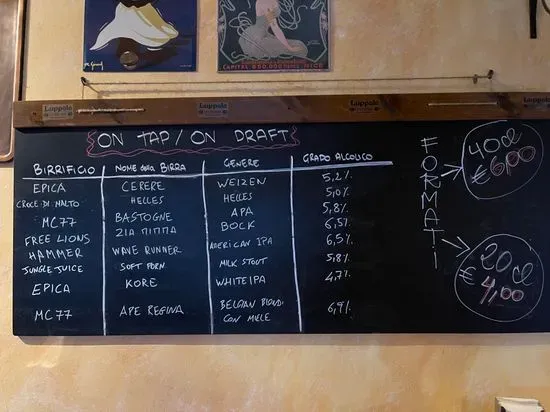 CAPITAL 850.000
Luppolo Luppolo Luppolo Luppolo
ON TAP / ON DRAFT
BIRRIFICIO NOME della BIRRA GENERE GRADO ALCOLICO
EPICA CERERE WEIZEN 5,2%
CROCE DI MALTO HELLES HELLES 5,0%
MC77 BASTOGNE APA 5,8%
FREE LIONS ZIA MIMMA BOCK 6,5%
HAMMER WAVE RUNNER AMERICAN IPA 6,5%
JUNGLE JUICE SOFT PORN. MILK STOUT 5,8%
EPICA KORE WHITE IPA 4,7%
MC77 APE REGINA BELGIAN BLOND CON MIELE 6,9%
FORMATI
40cl
€ 6,00
20cl
€ 4,00